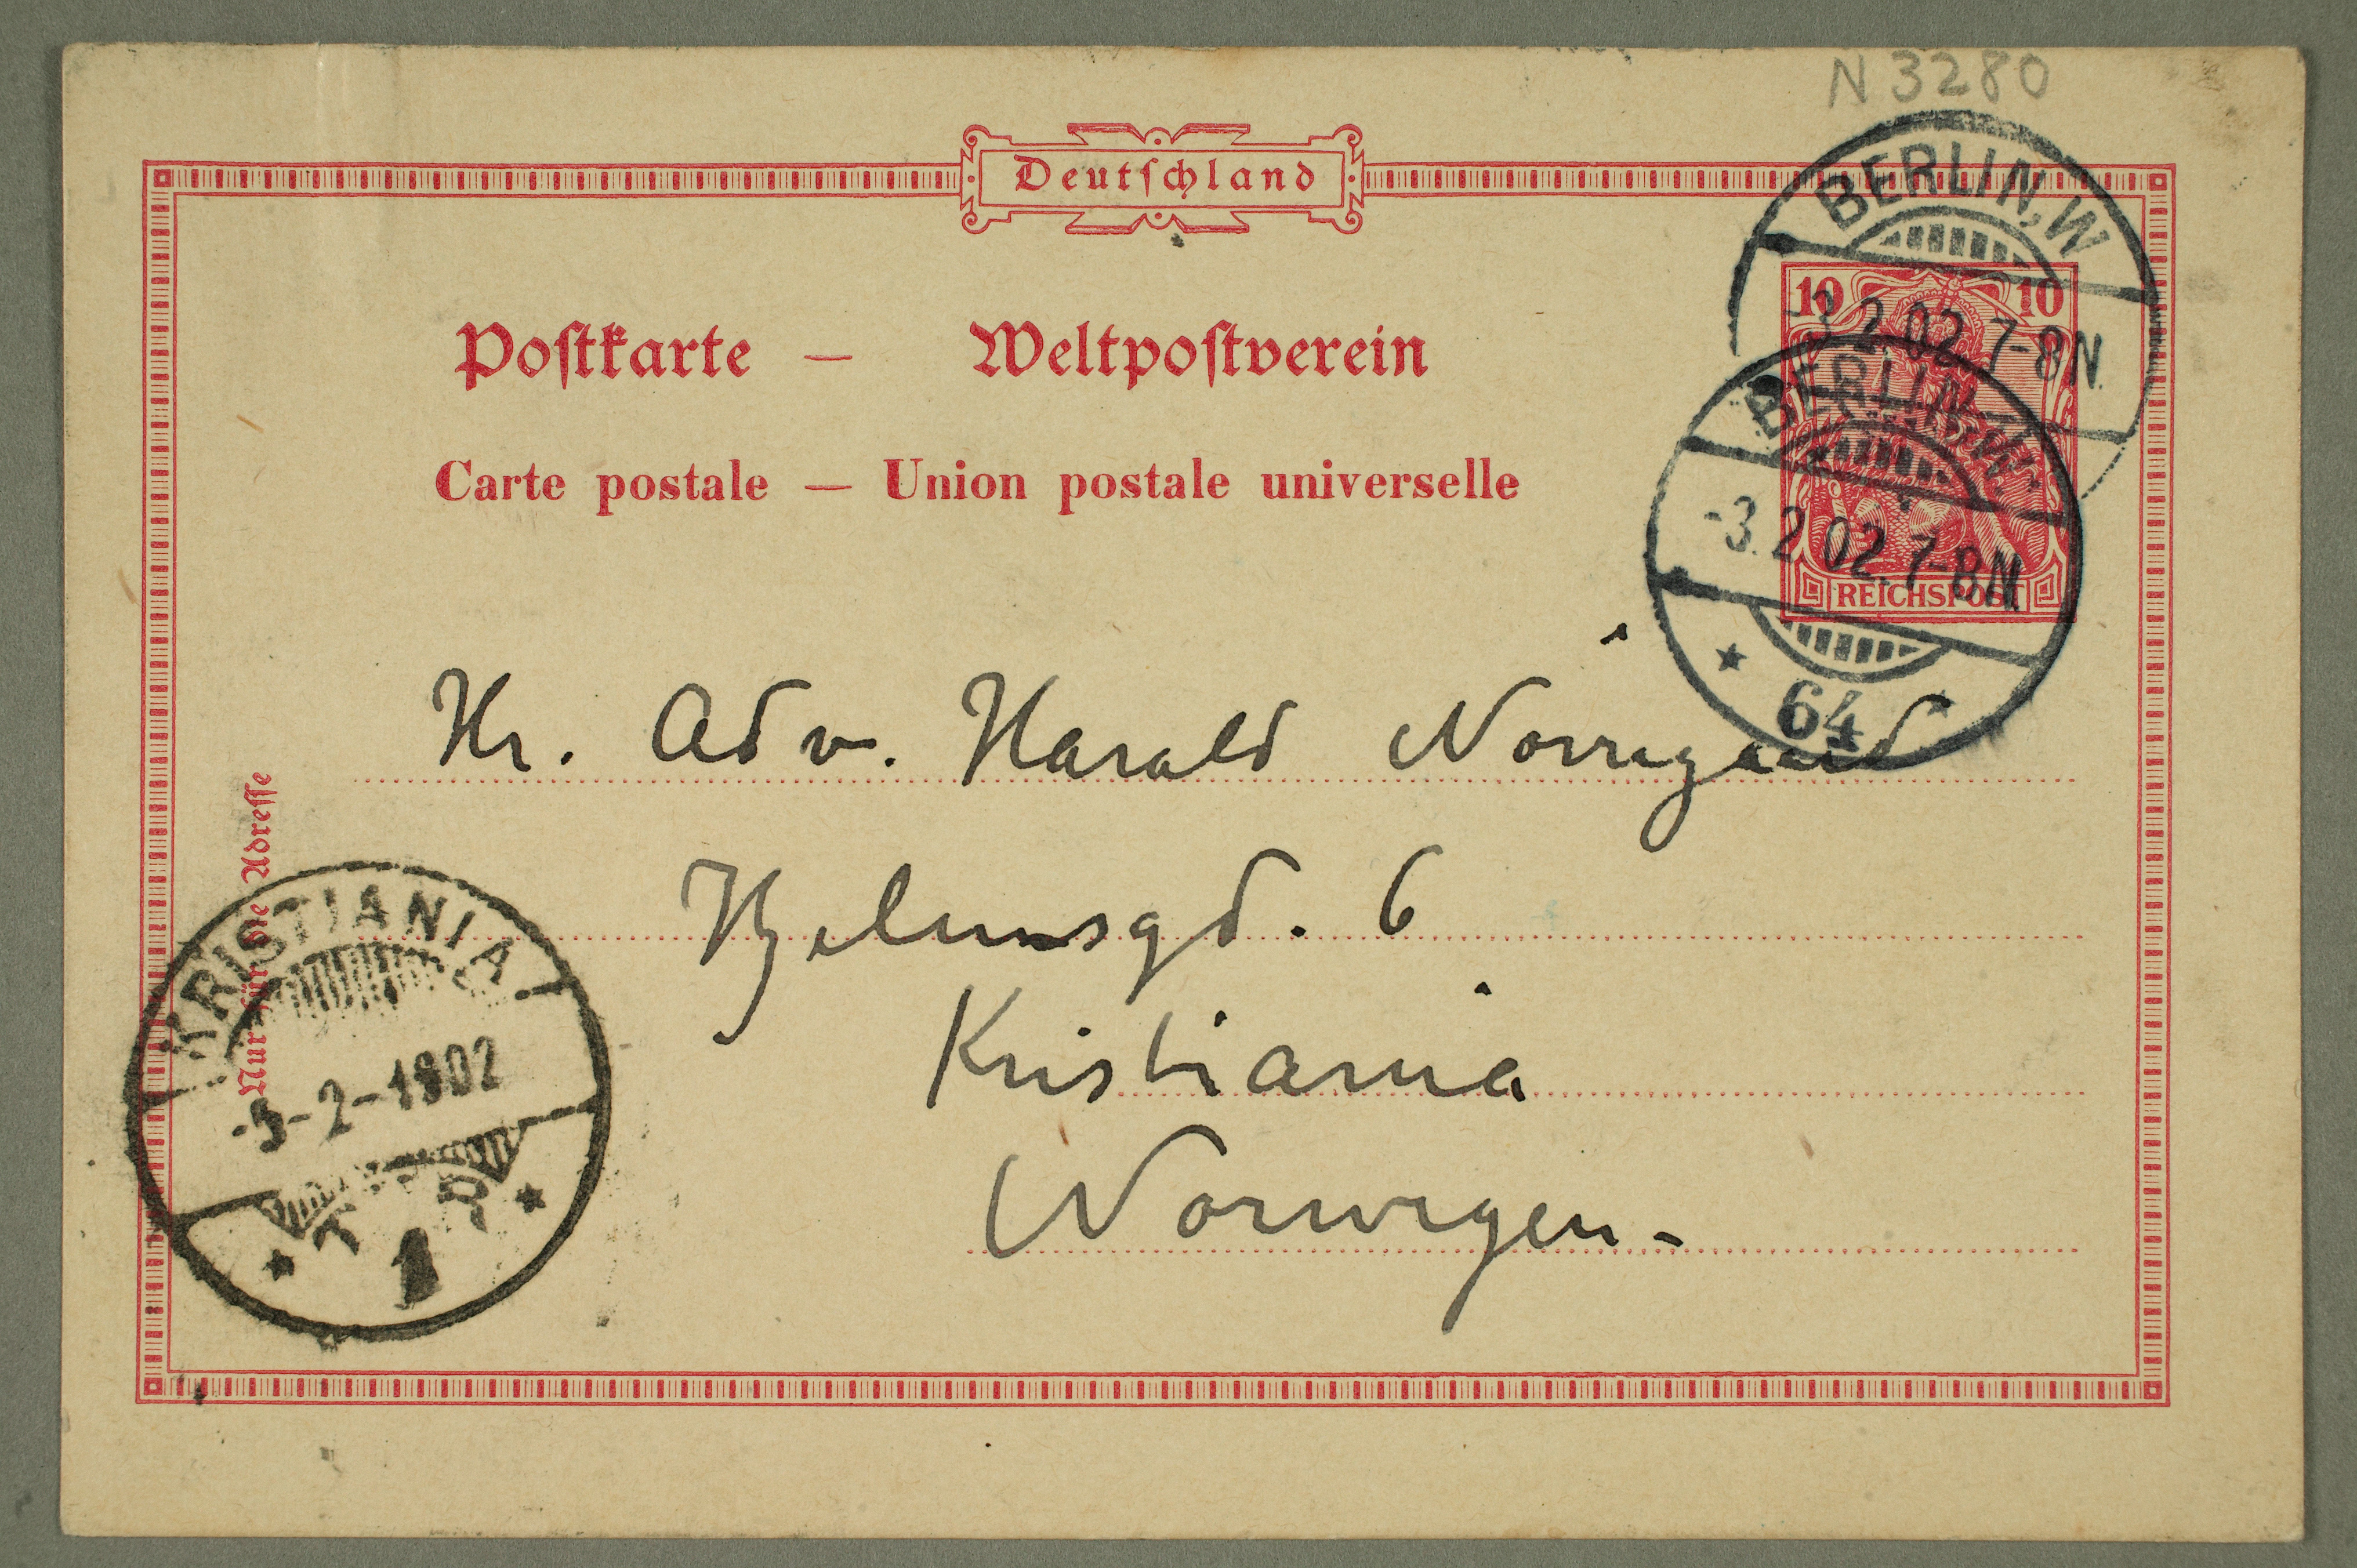 N 3280
Deutschland
BERLIN, W
10 10
-3.2.02.7-8N.
Postkarte — Weltpostverein
BERLIN, W.
Carte postale — Union postale universelle
-3.2.02.7-8N
REICHSPOST
* 64 *
Hr. Adv. Harald Nørregaard
Nur für die Adresse
Hjelmsgd. 6
KRISTIANIA
Kristiania
-2-1902
Norwegen-
* T 1 P *